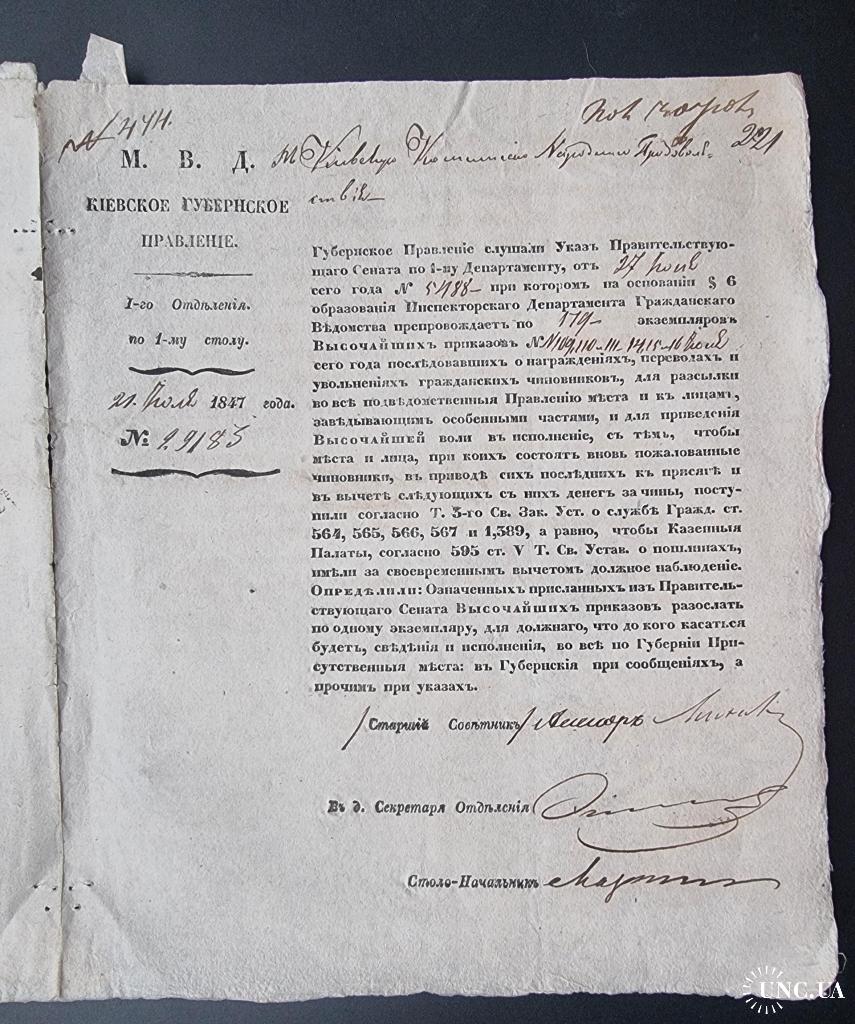 М. В. Д.
КІЕВСКОЕ ГУБЕРНСКОЕ
ПРАВЛЕНІЕ.
1-го Отдѣленія.
по 1-му столу.
21. Іюля 1847 года.
№ 29183
221
Кіевскую Коммисію Народнаго Продоволь-
ствія
Губернское Правленіе слушали Указъ Правительствую-
щаго Сената по 1-му Департаменту, отъ 27 Іюля
сего года № 5488 при которомъ на основаніи § 6
образованія Инспекторскаго Департамента Гражданскаго
Вѣдомства препровождаетъ по 179 экземпляровъ
Высочайшихъ приказовъ №№ 109, 110-111- Іюля
сего года послѣдовавшихъ о награжденіяхъ, переводахъ и
увольненіяхъ гражданскихъ чиновниковъ, для разсылки
во всѣ подвѣдомственныя Правленію мѣста и къ лицамъ,
завѣдывающимъ особенными частями, и для приведенія
Высочайшей воли въ исполненіе, съ тѣмъ, чтобы
мѣста и лица, при коихъ состоятъ вновь пожалованные
чиновники, въ приводѣ сихъ послѣднихъ къ присягѣ и
въ вычетѣ слѣдующихъ съ нихъ денегъ за чины, посту-
пили согласно Т. 3-го Св. Зак. Уст. о службѣ Гражд. ст.
564, 565, 566, 567 и 1,389, а равно, чтобы Казенныя
Палаты, согласно 595 ст. V Т. Св. Устав. о пошлинахъ,
имѣли за своевременнымъ вычетомъ должное наблюденіе.
Опредѣлили: Означенныхъ присланныхъ изъ Правитель-
ствующаго Сената Высочайшихъ приказовъ разослать
по одному экземпляру, для должнаго, что до кого касаться
будетъ, свѣденія и исполненія, во всѣ по Губерніи При-
сутственныя мѣста: въ Губернскія при сообщеніяхъ, а
прочимъ при указахъ.
Старшій Совѣтникъ Ассесоръ
Въ д. Секретаря Отдѣленія
Столо-Начальникъ
UNC.UA